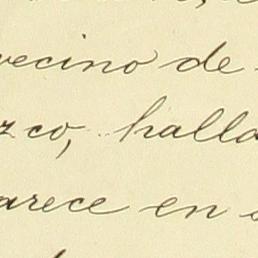 vecino de
zco, halla
arece en